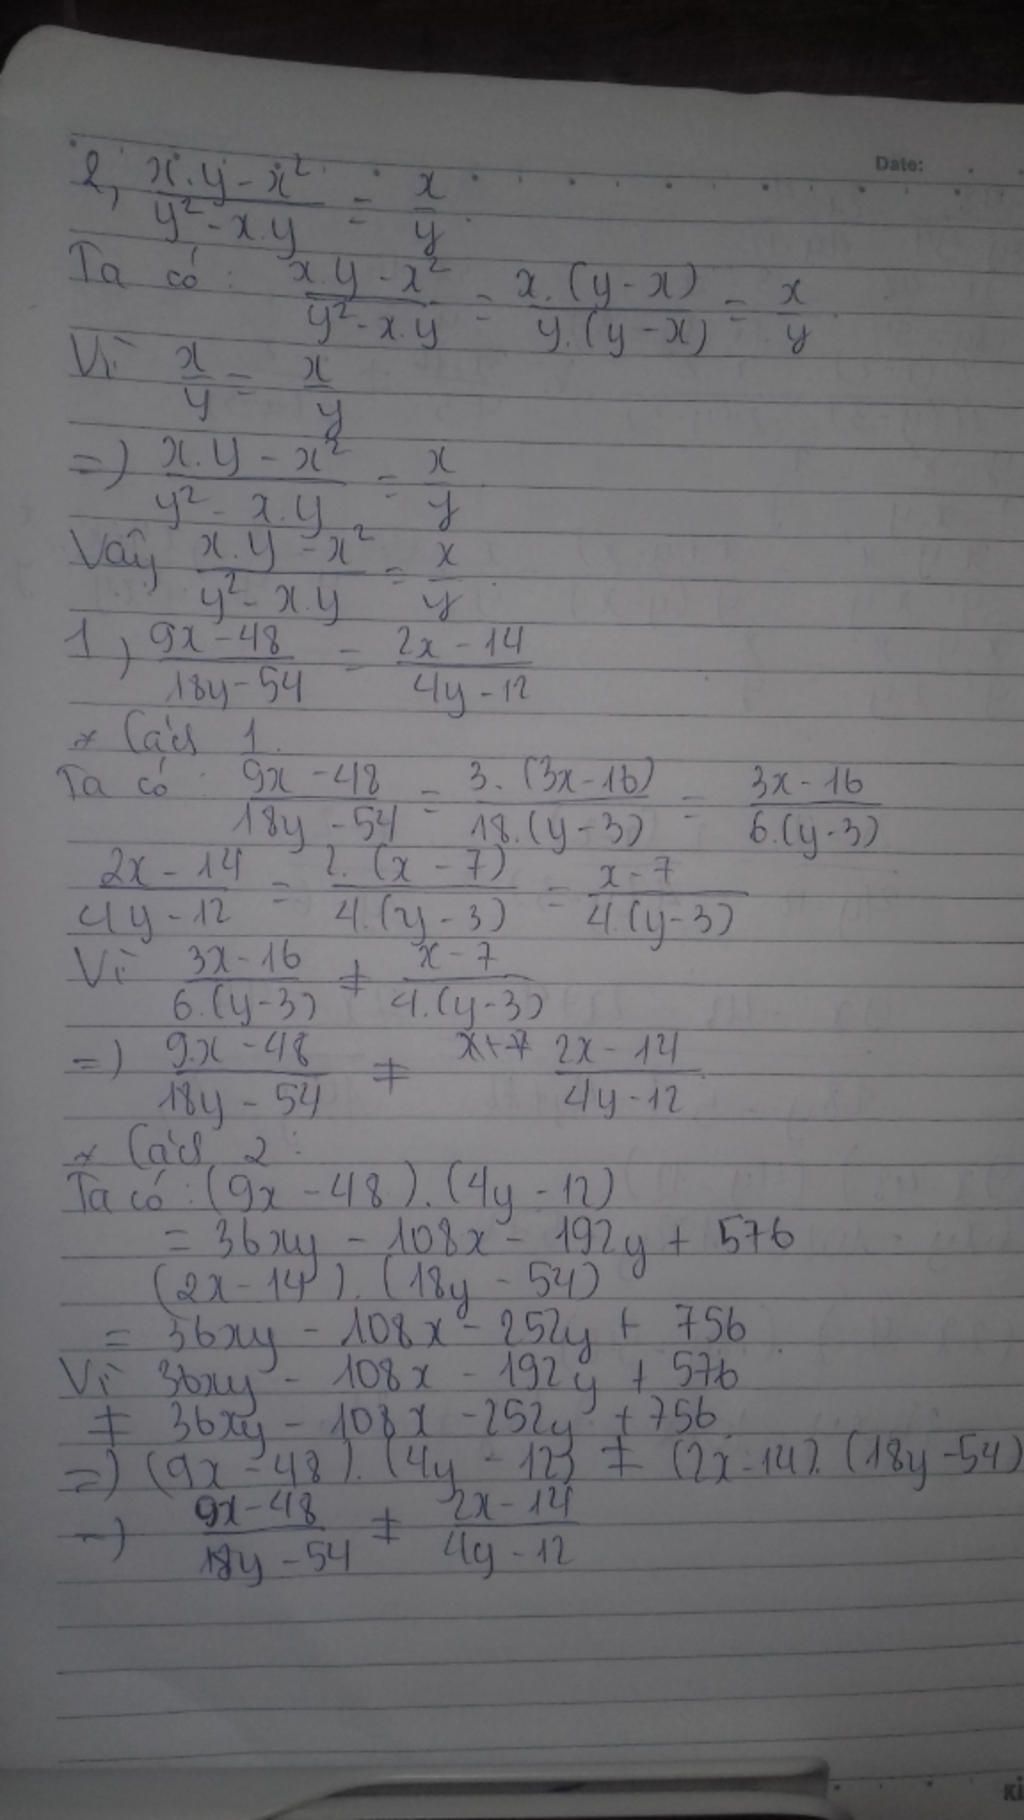 Date:
2, x.y - x² / y² - x.y = x / y
Ta có: x.y - x² / y² - x.y = x.(y - x) / y.(y - x) = x / y
Vì x / y = x / y
=) x.y - x² / y² - x.y = x / y
Vậy x.y - x² / y² - x.y = x / y
1, 9x - 48 / 18y - 54 = 2x - 14 / 4y - 12
* Cách 1.
Ta có: 9x - 48 / 18y - 54 = 3.(3x - 16) / 18.(y - 3) = 3x - 16 / 6.(y - 3)
2x - 14 / 4y - 12 = 2.(x - 7) / 4.(y - 3) = x - 7 / 4.(y - 3)
Vì 3x - 16 / 6.(y - 3) ≠ x - 7 / 4.(y - 3)
=) 9x - 48 / 18y - 54 ≠ 2x - 14 / 4y - 12
* Cách 2:
Ta có: (9x - 48).(4y - 12)
= 36xy - 108x - 192y + 576
(2x - 14).(18y - 54)
= 36xy - 108x - 252y + 756
Vì 36xy - 108x - 192y + 576
≠ 36xy - 108x - 252y + 756
=) (9x - 48).(4y - 12) ≠ (2x - 14).(18y - 54)
=) 9x - 48 / 18y - 54 ≠ 2x - 14 / 4y - 12